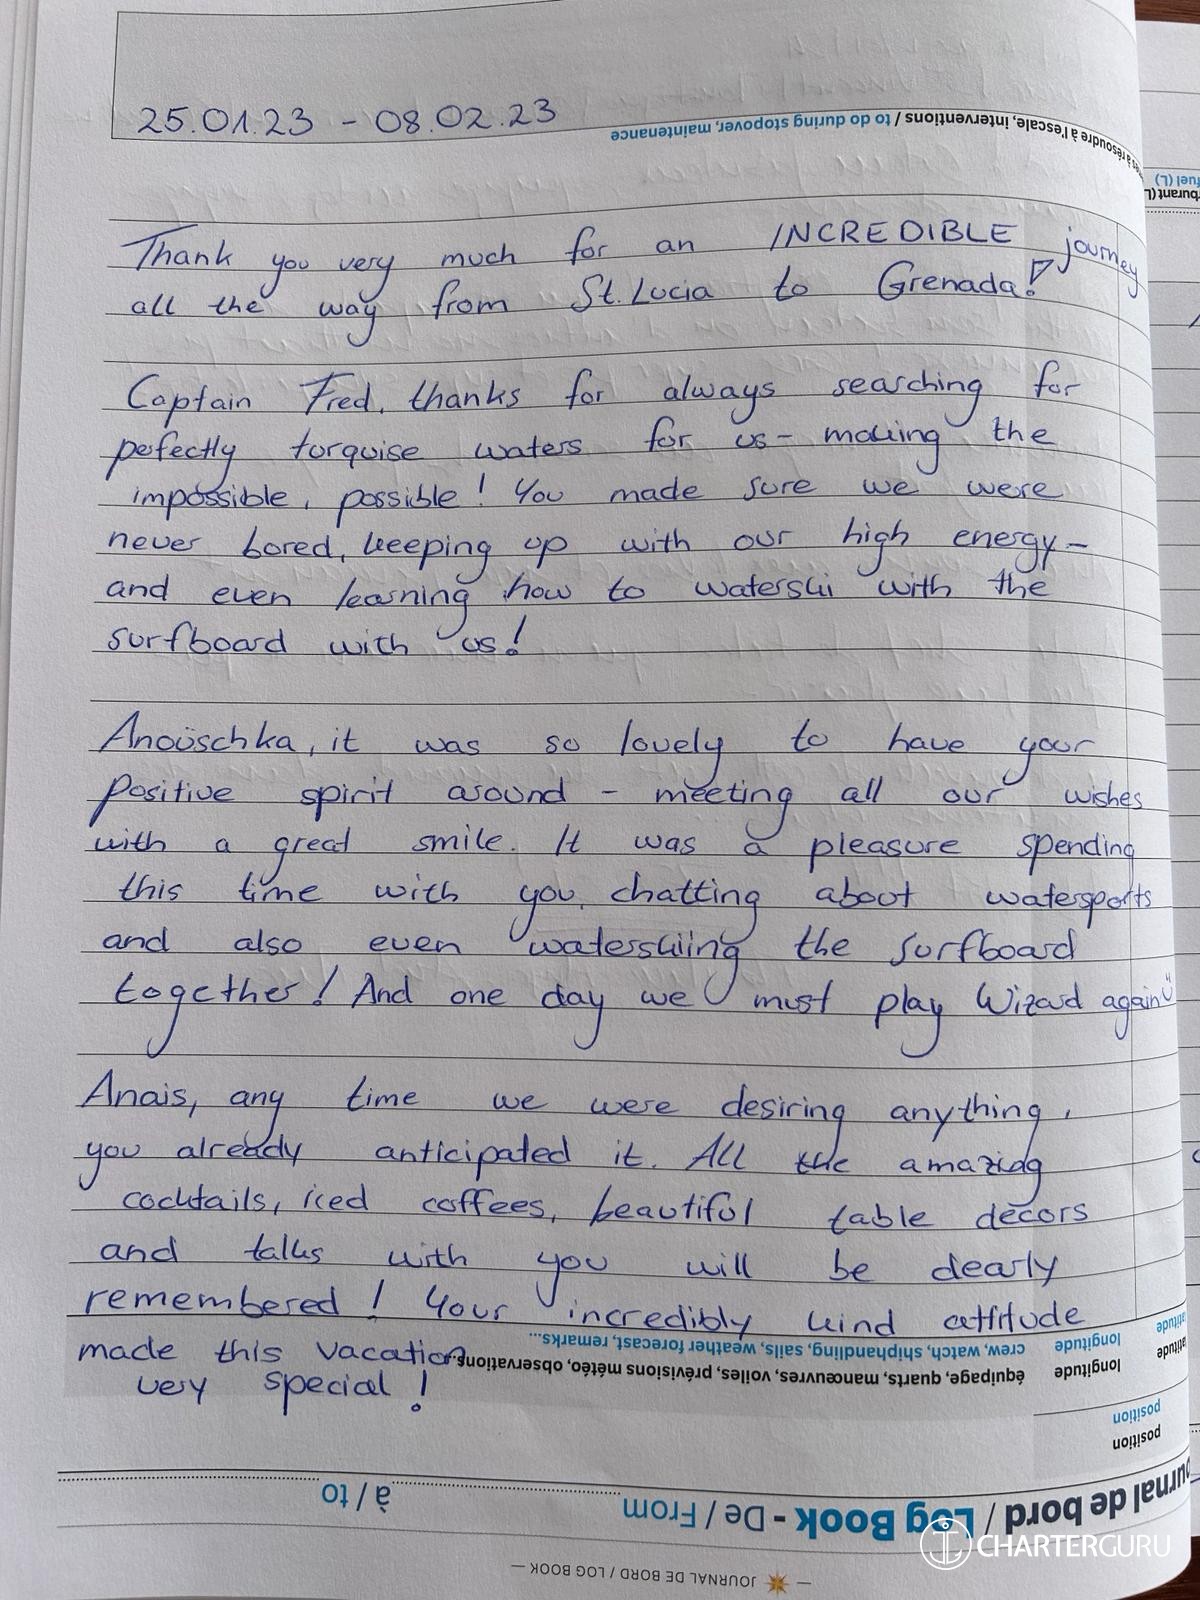 25.01.23 - 08.02.23
mes à résoudre à l'escale, interventions / to do during stopover, maintenance
Thank you very much for an INCREDIBLE journey
all the way from St. Lucia to Grenada!
Captain Fred, thanks for always searching for
perfectly torquise waters for us - making the
impossible, possible! You made sure we were
never bored, keeping up with our high energy -
and even learning how to waterski with the
surfboard with us!
Anouschka, it was so lovely to have your
positive spirit around - meeting all our wishes
with a great smile. It was a pleasure spending
this time with you, chatting about watersports
and also even waterskiing the surfboard
together! And one day we must play Wizard again
Anais, any time we were desiring anything,
you already anticipated it. All the amazing
cocktails, iced coffees, beautiful table décors
and talks with you will be dearly
remembered! Your incredibly kind attitude
made this vacation
very special!
crew, watch, shiphandling, sails, weather forecast, remarks...
équipage, quarts, manœuvres, voiles, prévisions météo, observations...
longitude
longitude
position
position
à / to
Journal de bord / Log Book - De / From
— JOURNAL DE BORD / LOG BOOK —
burant (L)
fuel (L)
latitude
latitude
CHARTERGURU